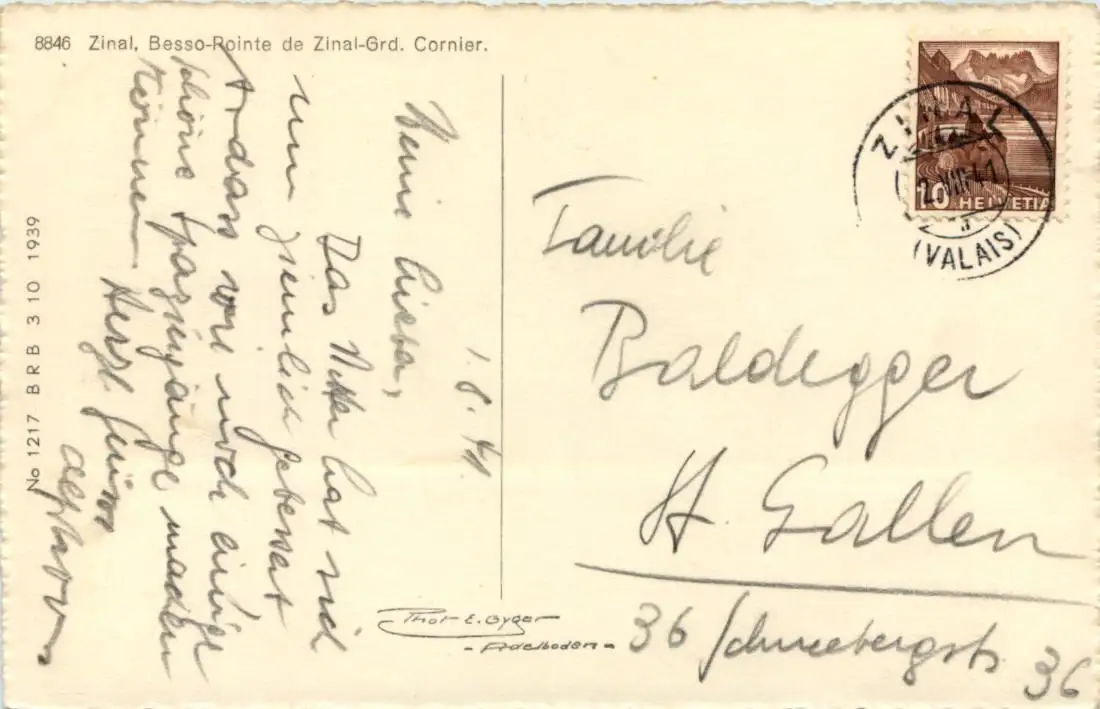 8846 Zinal, Besso-Pointe de Zinal-Grd. Cornier.
No 1217 BRB 3 10 1939
1. 8. 41
Meine Lieben,
Das Wetter hat sich
nun ziemlich gebessert
dass wir noch einige
schöne Spaziergänge machen
können Herzl. Grüsse
ZINAL
VIII 41
(VALAIS)
10 HELVETIA
Familie
Baldegger
St. Gallen
36 Schneebergstr. 36
Phot E. Gyger
- Adelboden -